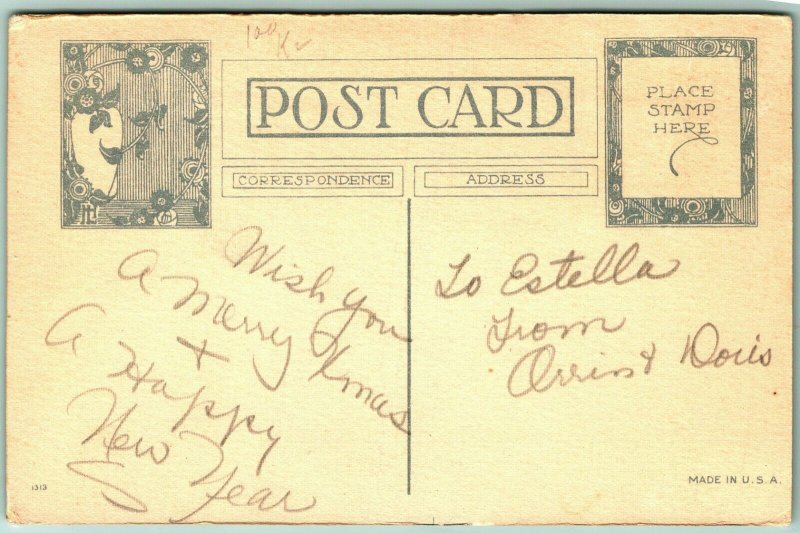 POST CARD
PLACE
STAMP
HERE
CORRESPONDENCE
ADDRESS
Wish you
A Merry Xmas
+
A Happy
New Year
To Estella
From
Orrin & Doris
1313
MADE IN U.S.A.